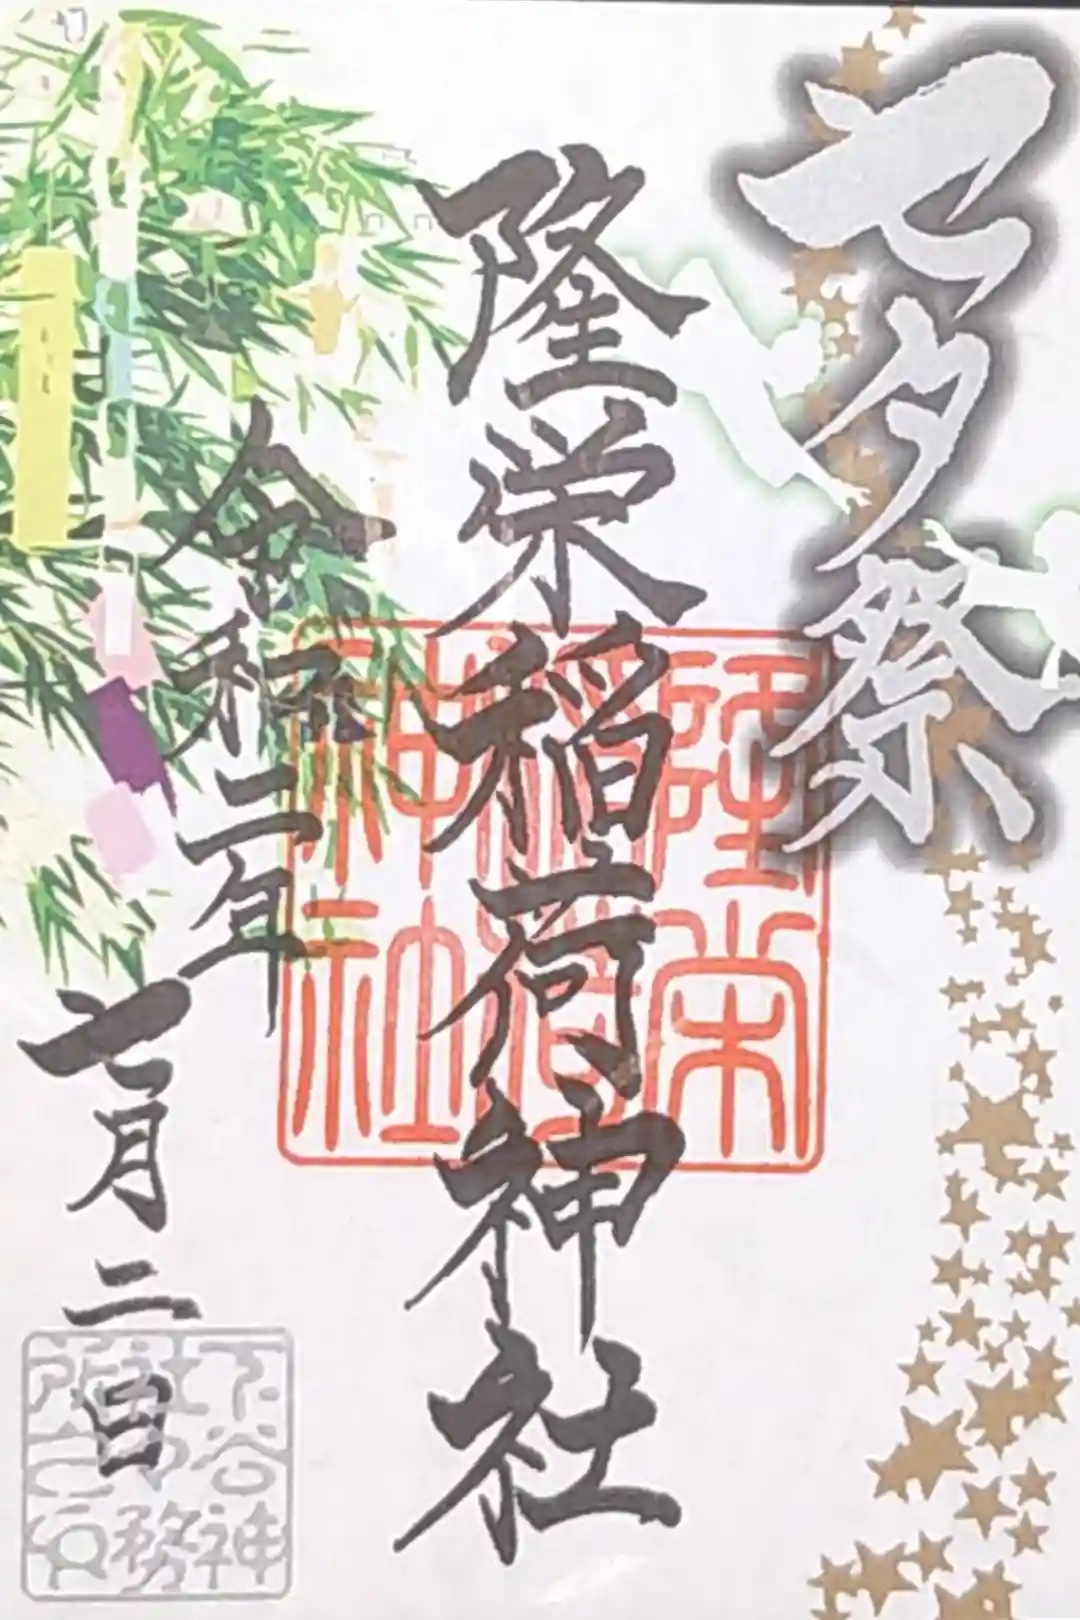 七夕祭
隆栄稲荷神社
令和二年
七月二日
隆栄
稲荷
神社
下谷神
社社務
所之印